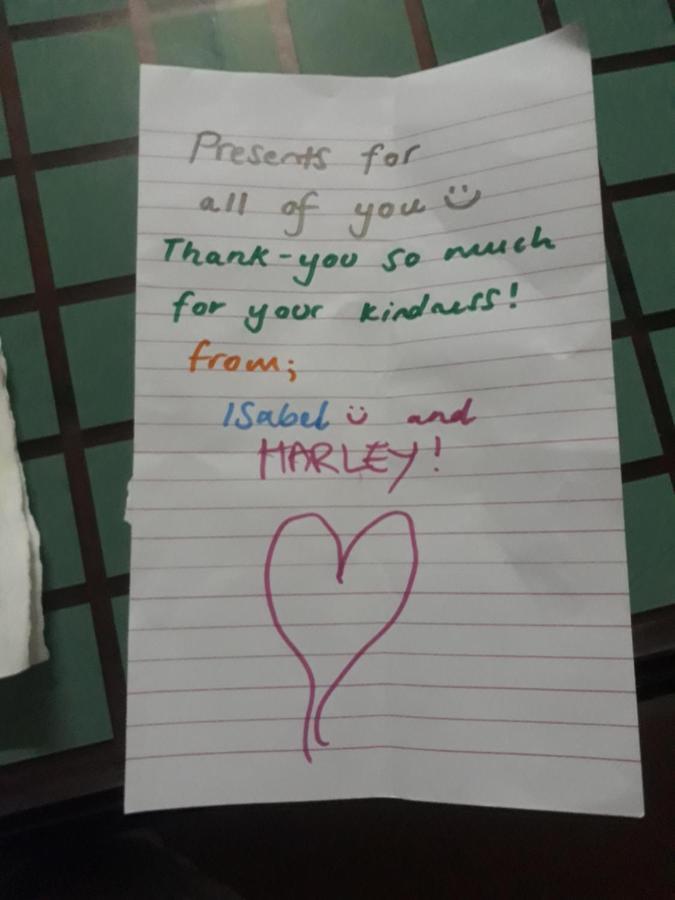 Presents for
all of you ☺
Thank-you so much
for your kindness!
from;
ISabel ☺ and
HARLEY!